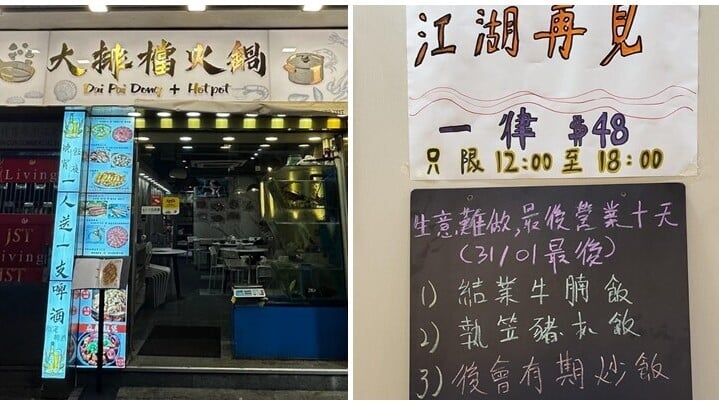 大排檔火鍋
Dai Pai Dong + Hotpot
一人送一支啤酒
(Living
JST
Living
JST
江湖再見
一律 $48
只限 12:00 至 18:00
生意難做,最後營業十天
(31/01最後)
1) 結業牛腩飯
2) 執笠豬扒飯
3) 後會有期炒飯